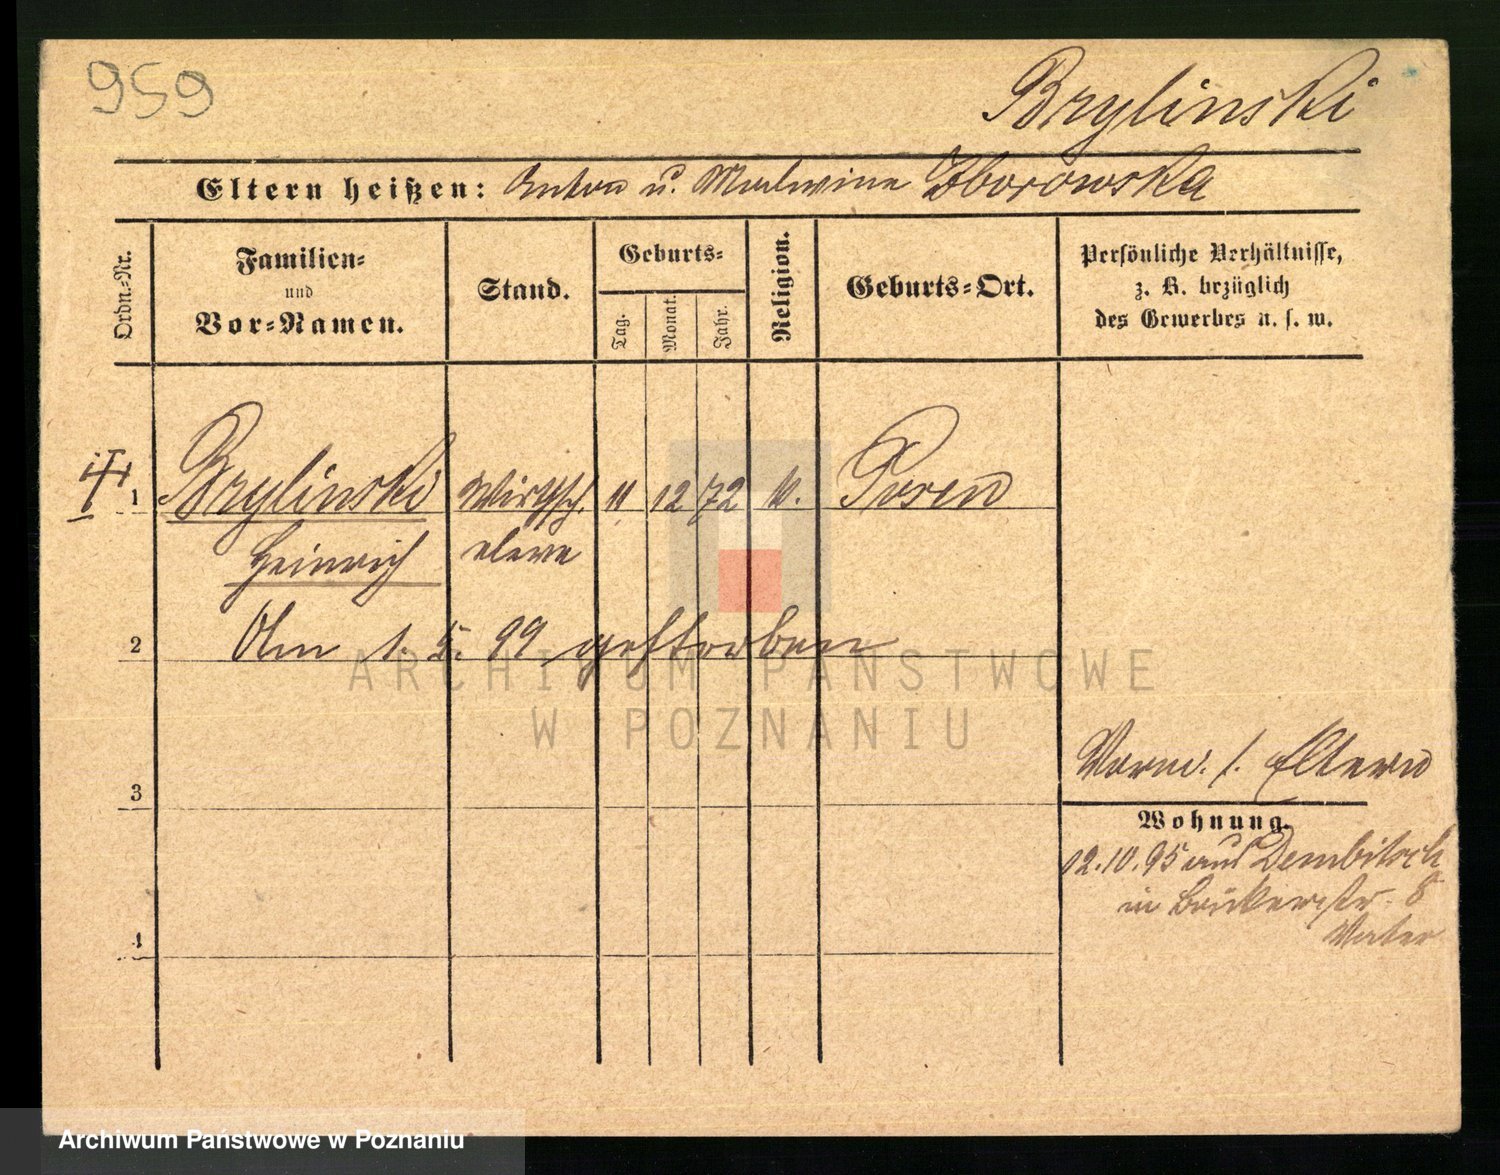 959
Brylinski
Eltern heißen: Anton u. Malwine Zborowska
Ordn.-Nr.
Familien-
und
Vor-Namen.
Stand.
Geburts-
Tag.
Monat.
Jahr.
Religion.
Geburts-Ort.
Persönliche Verhältnisse,
z. B. bezüglich
des Gewerbes u. s. w.
1 Brylinski Wirthsch. 11 12 72 k. Posen
Heinrich eleve
2 Am 1. 5. 99 gestorben
3
4
Verw. /. Eltern
Wohnung.
12.10.95 aus Dembitsch
in Bäckerstr. 8
Vater
ARCHIWUM PAŃSTWOWE
W POZNANIU
Archiwum Państwowe w Poznaniu